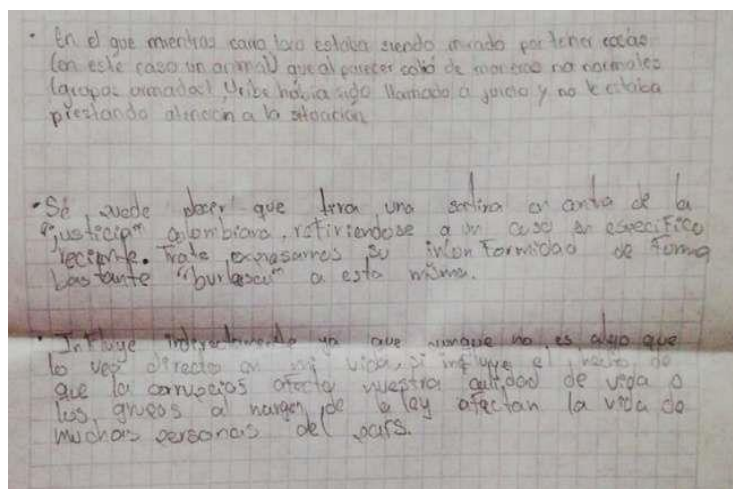 • En el que mientras cano loco estaba siendo mirado por tener cocas
(en este caso un animal) que al parecer salió de maneras no normales
(grupos armados), Uribe había sido llamado a juicio y no le estaba
prestando atención a la situación
• Se puede decir que tira una sátira en contra de la
"justicia" colombiana, refiriendose a un caso en especifico
reciente. Trata expresarnos su inconformidad de forma
bastante "burlesca" a esta misma.
• Influye indirectamente ya que aunque no es algo que
lo vea directo en mi vida, si influye el hecho de
que la corrupcios afecta nuestra calidad de vida o
los grupos al margen de la ley afectan la vida de
muchas personas del pais.